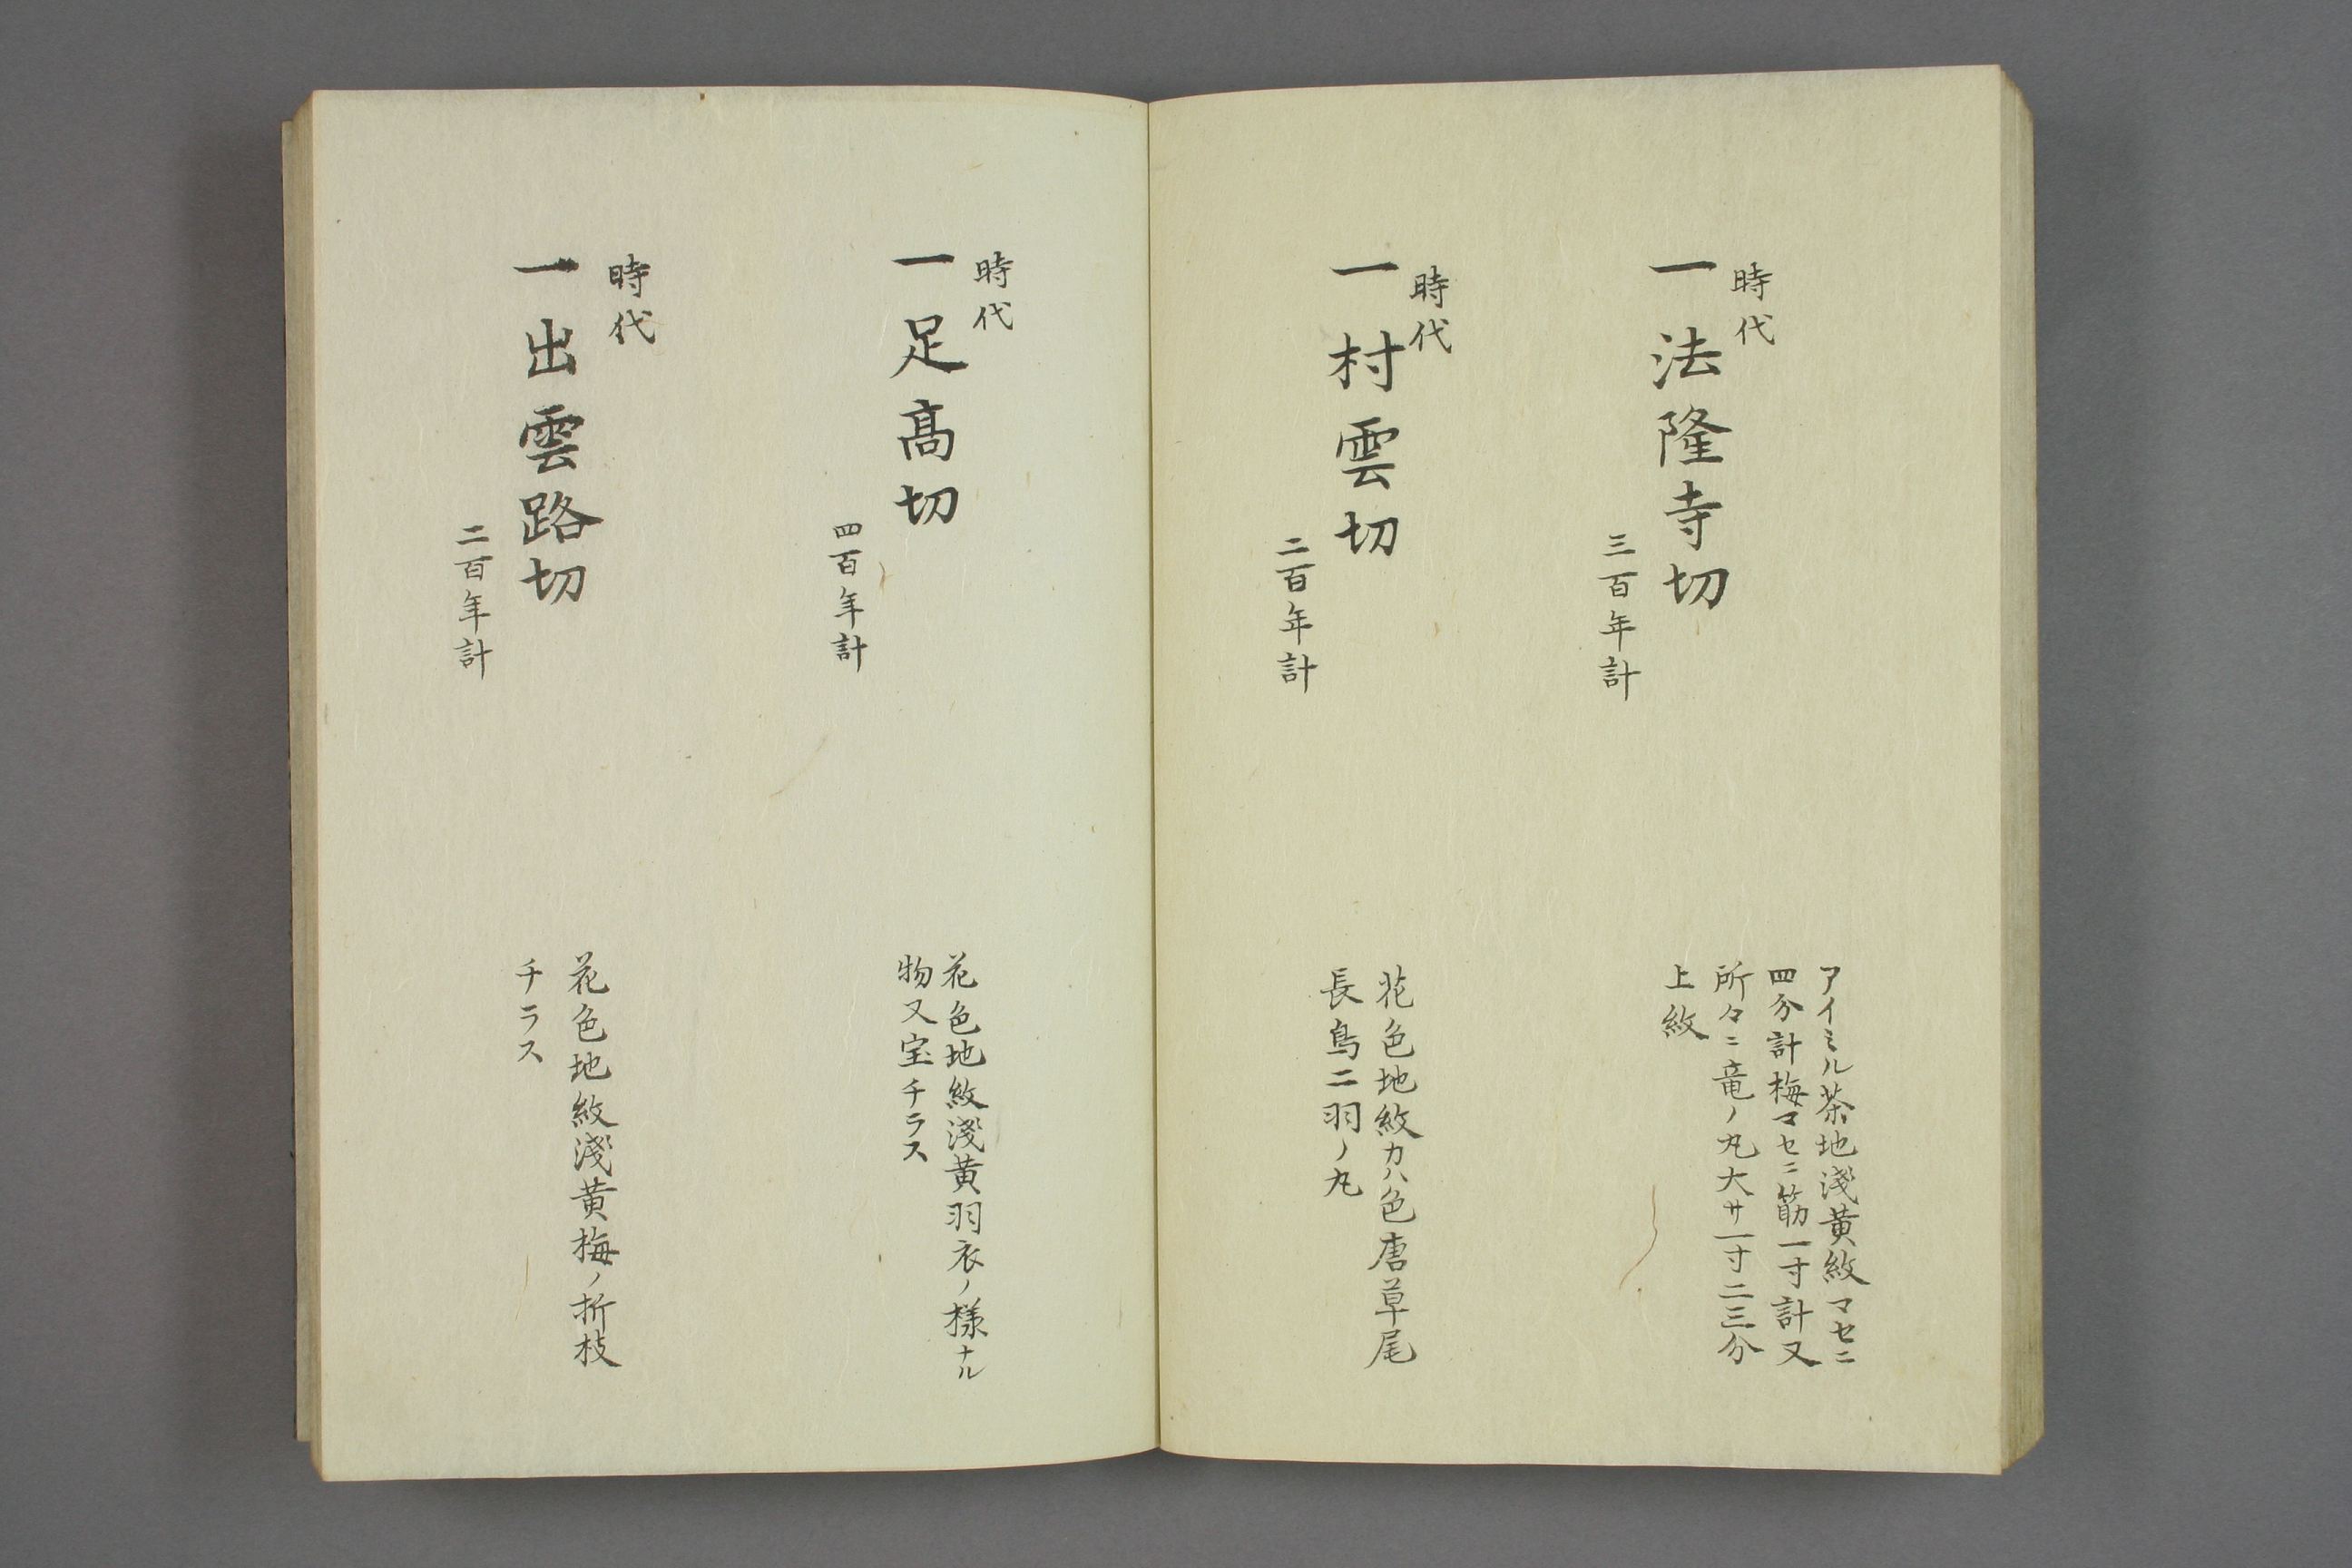 時代
一法隆寺切
三百年計
アイミル茶地淺黄紋マセニ
四分計梅マセニ筋一寸計又
所々ニ竜ノ丸大サ一寸二三分
上紋
時代
一村雲切
二百年計
花色地紋カハ色唐草尾
長鳥二羽ノ丸
時代
一足髙切
四百年計
花色地紋淺黄羽衣ノ様ナル
物又宝チラス
時代
一出雲路切
二百年計
花色地紋淺黄梅ノ折枝
チラス